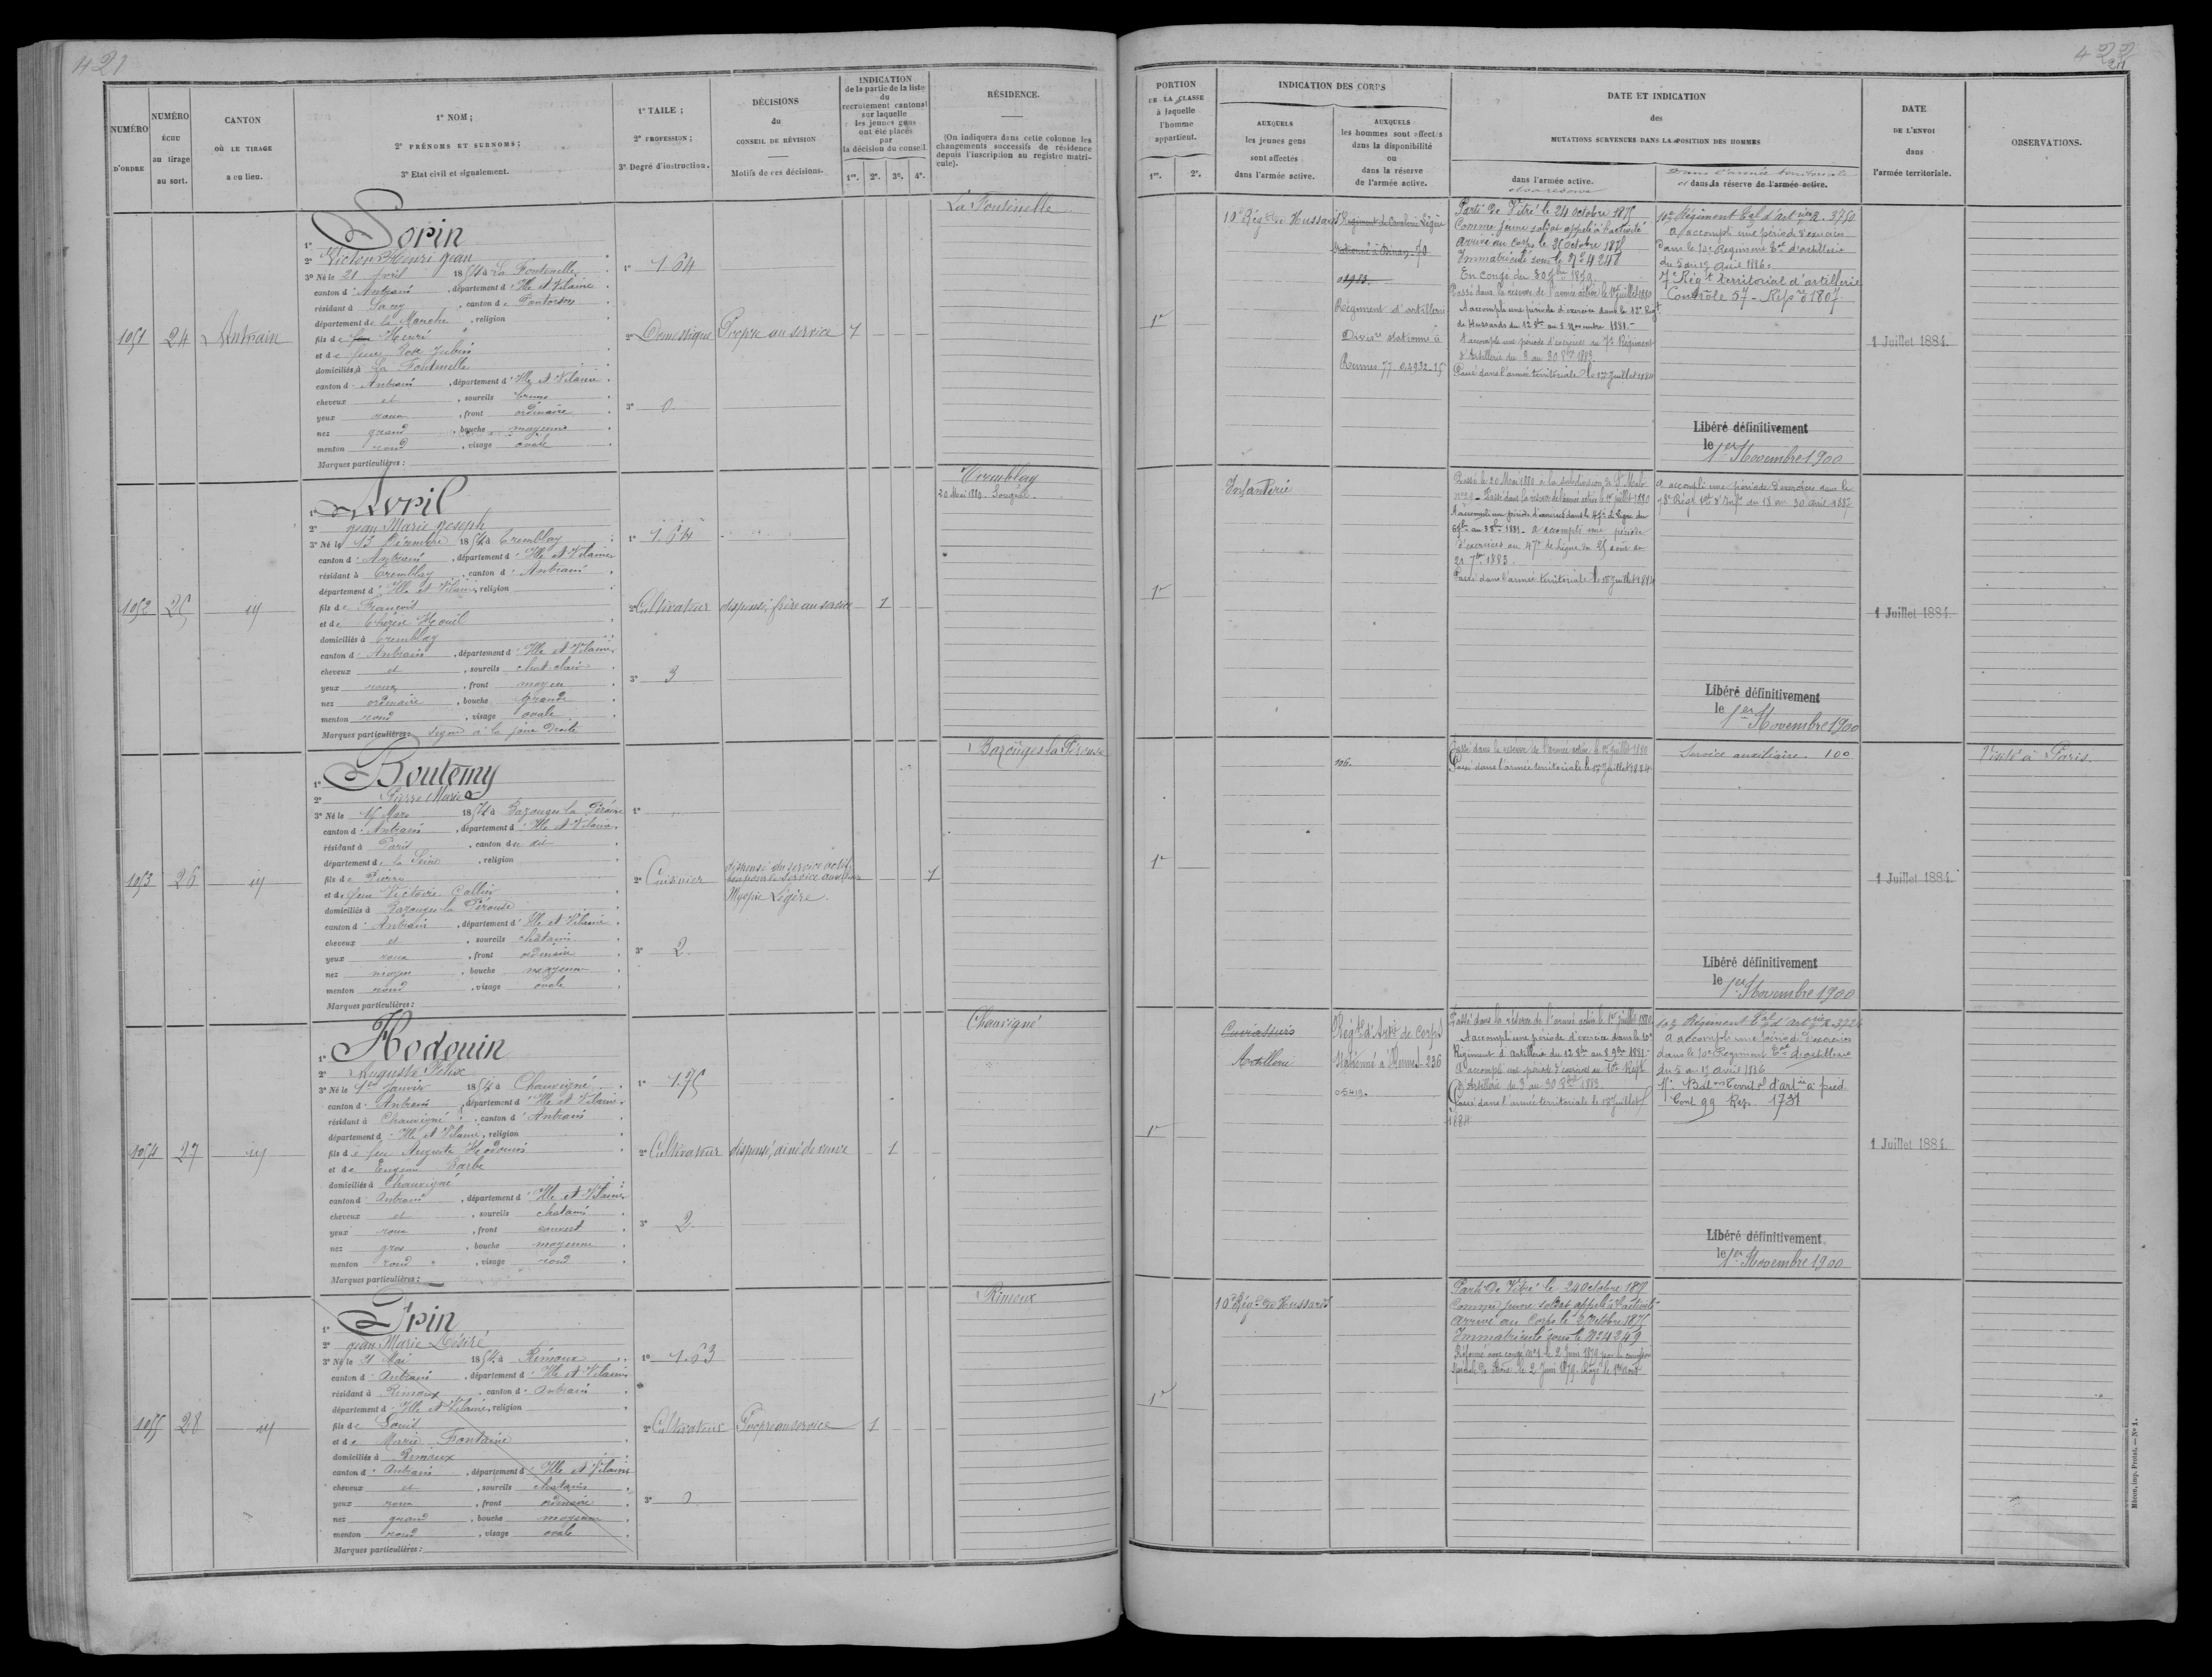 421
NUMÉRO D'ORDRE
NUMÉRO ÉCHU au tirage au sort.
CANTON OÙ LE TIRAGE a eu lieu.
1° NOM;
2° PRÉNOMS ET SURNOMS;
3° Etat civil et signalement.
1° TAILE;
2° PROFESSION;
3° Degré d'instruction.
DÉCISIONS du CONSEIL DE RÉVISION
Motifs de ces décisions.
INDICATION de la partie de la liste du recrutement cantonal sur laquelle les jeunes gens ont été placés par la décision du conseil.
1re. 2e. 3e. 4e.
RÉSIDENCE.
(On indiquera dans cette colonne les changements successifs de résidence depuis l'inscription au registre matricule).
1051
24
Antrain
1°
Sorin
2° Victor Henri Jean
3° Né le 21 Avril 1854 à La Fontenelle
canton d' Antrain, département d' Ille et Vilaine
résidant à Sacey, canton de Pontorson
département de la Manche, religion
fils de Henri
et de feue
domiciliés à La Fontenelle
canton d' Antrain, département d' Ille et Vilaine
cheveux et, sourcils bruns
yeux roux, front ordinaire
nez grand, bouche moyenne
menton rond, visage ovale
Marques particulières:
1° 1.64
2° Domestique
3° 0
Propre au service
1
La Fontenelle
1052
25
id
1°
Avril
2° Jean Marie Joseph
3° Né le 13 Décembre 1854 à Tremblay
canton d' Antrain, département d' Ille et Vilaine
résidant à Tremblay, canton d' Antrain
département d' Ille et Vilaine, religion
fils de François
et de Thérèse Houil
domiciliés à Tremblay
canton d' Antrain, département d' Ille et Vilaine
cheveux et, sourcils chat. clair
yeux roux, front moyen
nez ordinaire, bouche grande
menton rond, visage ovale
Marques particulières: signe à la joue droite
1° 1.64
2° Cultivateur
3° 3
dispensé, frère au service
1
Tremblay
20 Mai 1880
1053
26
id
1°
Boutemy
2° Pierre Marie
3° Né le 15 Mars 1854 à Bazouges la Pérouse
canton d' Antrain, département d' Ille et Vilaine
résidant à Paris, canton du dit
département de la Seine, religion
fils de Pierre
et de feue Victoire
domiciliés à Bazouges la Pérouse
canton d' Antrain, département d' Ille et Vilaine
cheveux et, sourcils chatains
yeux roux, front ordinaire
nez moyen, bouche moyenne
menton rond, visage ovale
Marques particulières:
1°
2° Cuisinier
3° 2
dispensé du service actif,
bon pour le service auxiliaire
Myopie Légère.
1
Bazouges la Pérouse
1054
27
id
1°
Hodouin
2° Auguste Félix
3° Né le 1er Janvier 1854 à Chauvigné
canton d' Antrain, département d' Ille et Vilaine
résidant à Chauvigné, canton d' Antrain
département d' Ille et Vilaine, religion
fils de feu Auguste Hodouin
et de Eugénie Barbe
domiciliés à Chauvigné
canton d' Antrain, département d' Ille et Vilaine
cheveux et, sourcils chatains
yeux roux, front couvert
nez gros, bouche moyenne
menton rond, visage rond
Marques particulières:
1° 1.75
2° Cultivateur
3° 2
dispensé, ainé de veuve
1
Chauvigné
1055
28
id
1°
2° Jean Marie Désiré
3° Né le 21 Mai 1854 à Rimoux
canton d' Antrain, département d' Ille et Vilaine
résidant à Rimoux, canton d' Antrain
département d' Ille et Vilaine, religion
fils de Louis
et de Marie Fontaine
domiciliés à Rimoux
canton d' Antrain, département d' Ille et Vilaine
cheveux et, sourcils chatains
yeux roux, front ordinaire
nez grand, bouche moyenne
menton rond, visage ovale
Marques particulières:
1° 1.63
2° Cultivateur
3° 0
Propre au service
1
Rimoux
422
211
PORTION DE LA CLASSE à laquelle l'homme appartient.
1re. 2e.
INDICATION DES CORPS
AUXQUELS les jeunes gens sont affectés dans l'armée active.
AUXQUELS les hommes sont affectés dans la disponibilité ou dans la réserve de l'armée active.
DATE ET INDICATION des MUTATIONS SURVENUES DANS LA POSITION DES HOMMES
dans l'armée active.
et sa réserve
Dans l'armée territoriale
et dans la réserve de l'armée active.
DATE DE L'ENVOI dans l'armée territoriale.
OBSERVATIONS.
1re
10e Régt de Hussards
Régiment de Cavalerie Légère
stationné à Dinan - 70
01983.
Régiment d'artillerie
Divisre stationné à
Rennes 77 - 04932 - 15
Parti de Vitré le 24 octobre 1875
Comme jeune soldat appelé à l'activité
arrivé au Corps le 25 octobre 1875
Immatriculé sous le No 4248
En congé du 30 1879.
Passé dans la réserve de l'armée active le 1er juillet 1880
A accompli une période d'exercices dans le 12e Régt
de Hussards du 12 8bre au 8 Novembre 1881.
A accompli une période d'exercices au 7e Régiment
d'Artillerie du 3 au 30 1883
Passé dans l'armée territoriale le 1er Juillet 1884
10e Régiment Tal d'Artrie R. 3750
A accompli une période d'exercices
dans le 10e Régiment Tal d'artillerie
du 5 au 17 avril 1886.
7e Régt territorial d'artillerie
Contrôle 57 - Rép re 1807
Libéré définitivement
le 1er Novembre 1900
1 Juillet 1884.
1re
Infanterie
Passé le 20 Mai 1880 à la subdivision de St Malo
Passé dans la réserve de l'armée active le 1er juillet 1880
A accompli une période d'exercices dans le 47e de Ligne du
au 1881. A accompli une période
d'exercices au 47e de Ligne du 25 août au
21 7bre 1883.
Passé dans l'armée territoriale le 1er Juillet 1884
A accompli une période d'exercices dans le
78e Régt tal d'Infie du 18 au 30 avril 1887
Libéré définitivement
le 1er Novembre 1900
1 Juillet 1884.
1re
106.
Passé dans la réserve de l'armée active le 1er juillet 1880
Passé dans l'armée territoriale le 1er Juillet 1884
Service auxiliaire. 100
Libéré définitivement
le 1er Novembre 1900
1 Juillet 1884.
Visité à Paris.
1re
Cuirassiers
Artillerie
Régt d'Artie de Corps
Stationné à Rennes - 236
05419.
Passé dans la réserve de l'armée active le 1er juillet 1880
A accompli une période d'exercice dans le 10e
Régiment d'artillerie du 12 8bre au 8 9bre 1881.
A accompli une période d'exercices au 10e Régt
d'Artillerie du 3 au 30 1883
Passé dans l'armée territoriale le 1er Juillet
1884
10e Régiment Tal d'Artrie R. 3726
A accompli une période d'exercices
dans le 10e Régiment Tal d'artillerie
du 5 au 17 avril 1886
Baton Territal d'artie à pied
Cont 99 Rép. 1731
Libéré définitivement
le 1er Novembre 1900
1 Juillet 1884.
1re
10e Régt de Hussards
Parti de Vitré le 24 Octobre 1875
Comme jeune soldat appelé à l'activité
arrivé au Corps le 25 octobre 1875
Immatriculé sous le No 4249
Réformé avec congé no 1 le 2 Juin 1879 par la commission
spéciale de le 2 Juin 1879. Rayé le
Mâcon, imp. Protat. — No 1.